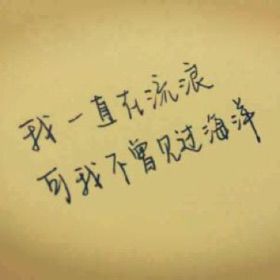 我一直在流浪
可我不曾见过海洋